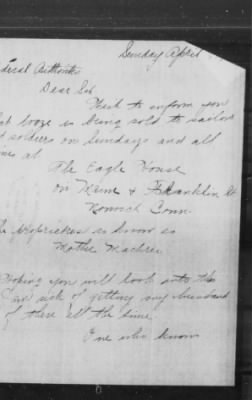 Sunday April
Federal Authorites
Dear Sir
Wish to inform you
that booze is being sold to sailors
and soldiers on Sundays and all
time at
The Eagle House
on Main & Franklin St
Norwich Conn
The is know as
Mother Machree
Hoping you will look into this
I am sick of getting my husband
of there all the time
One who know